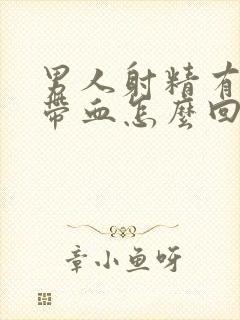 男人射精有
帶血怎麼回
章小魚呀